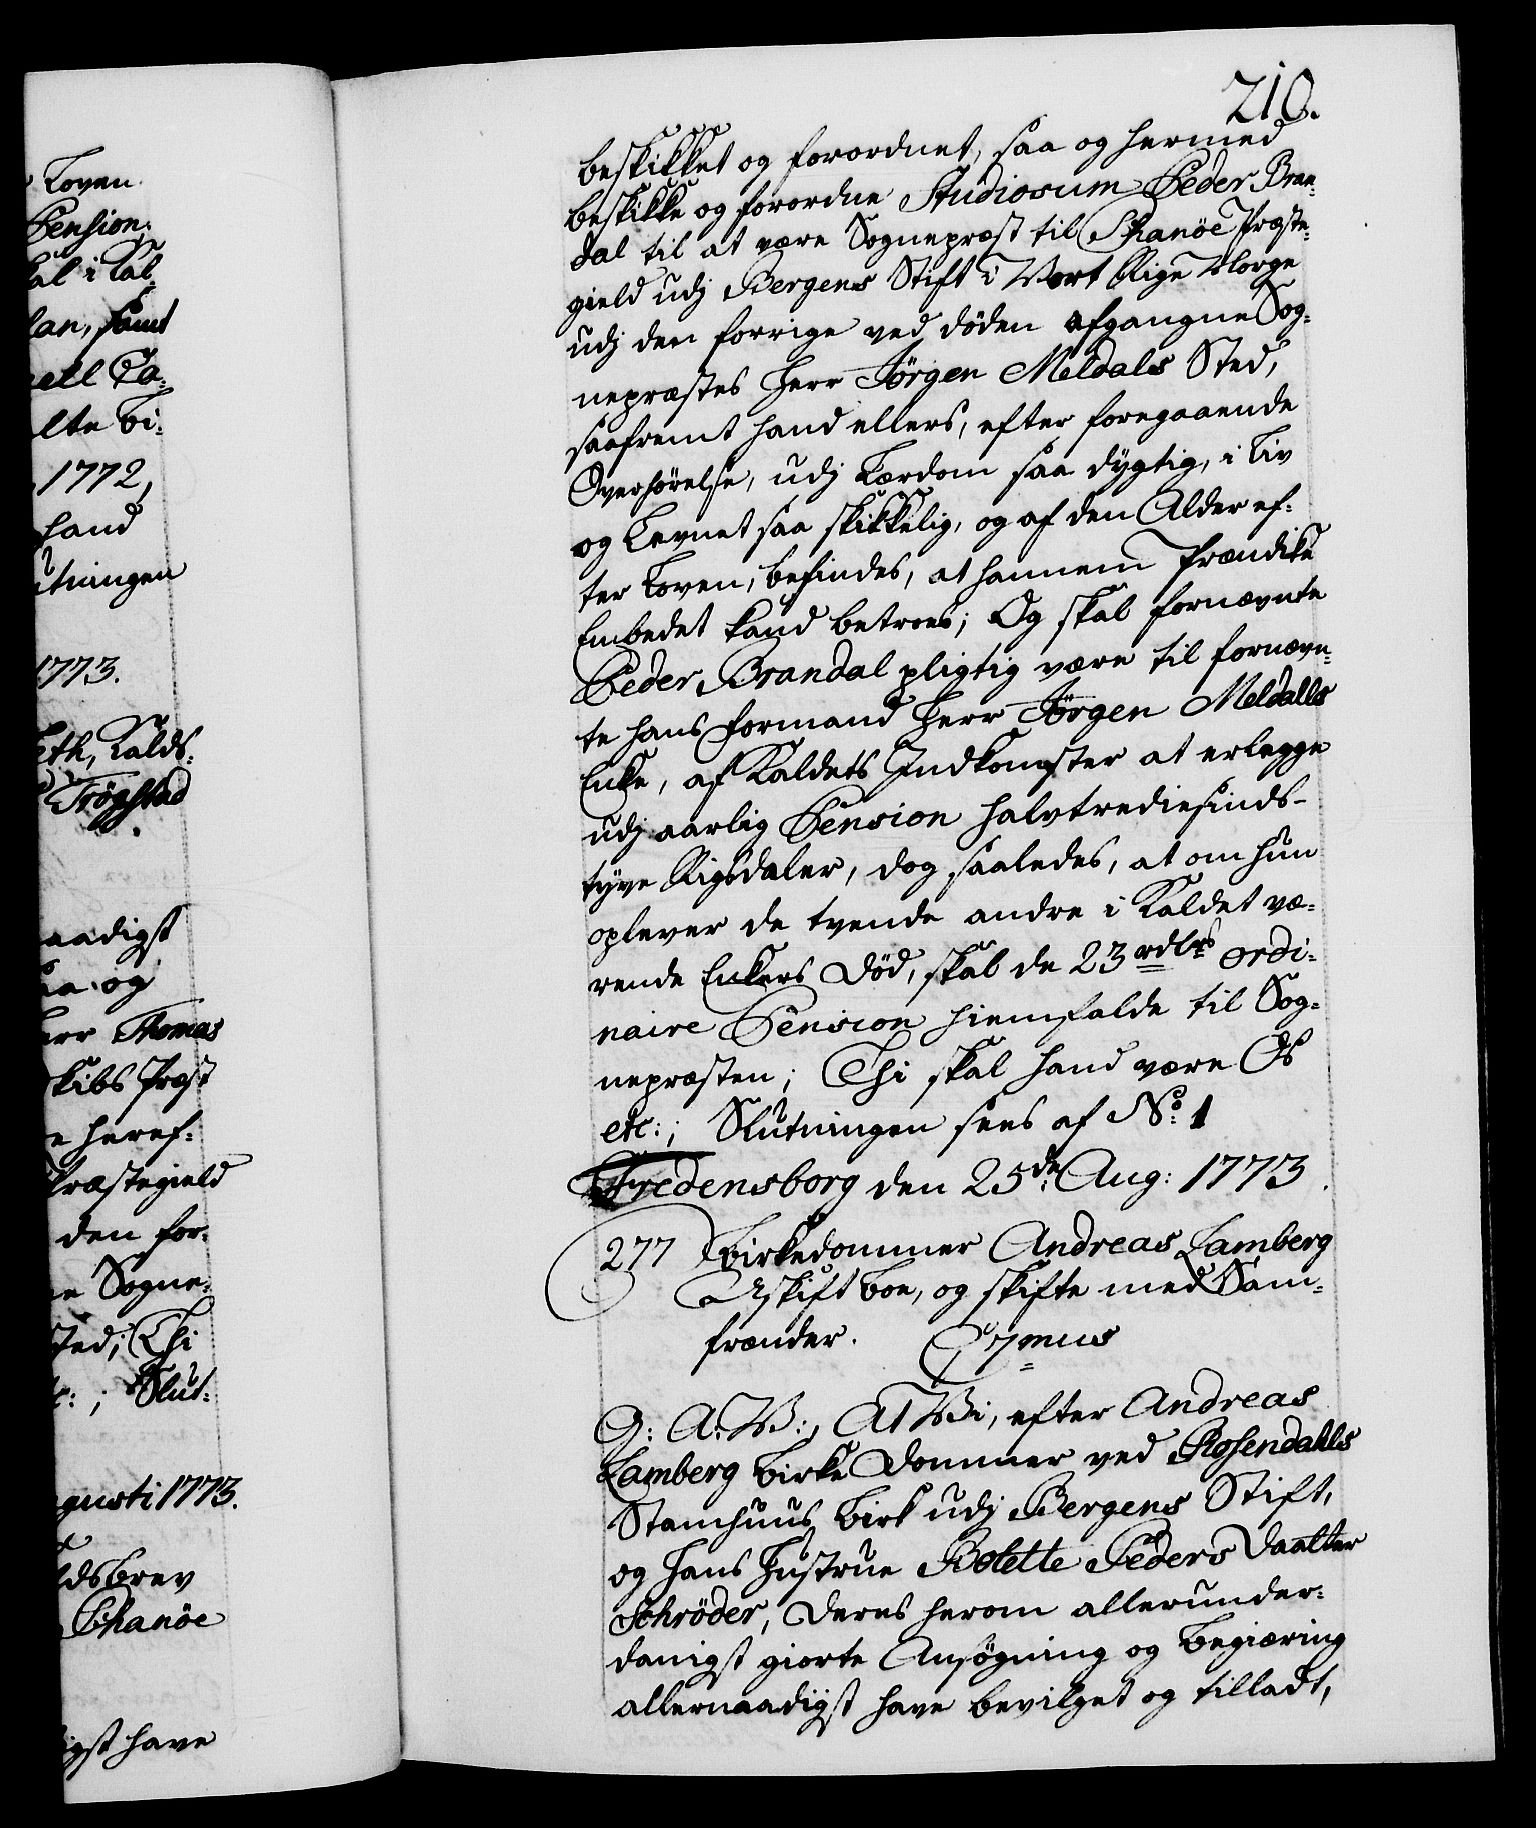 210.
beskikket og forordnet, saa og hermed
beskikke og forordne Studiosum Peder Bran-
dal til at være Sognepræst til Phanöe Præste-
gield udj Bergens Stift i Vort Rige Norge
udj den forrige ved døden afgangne Sog-
nepræstes Herr Jörgen Meldals Sted,
saafremt hand ellers, efter foregaaende
Overhörelse, udj Lærdom saa dygtig, i Liv
og Levnet saa skikkelig, og af den Alder ef-
ter Loven, befindes, at hannem Prædike
Embedet kand betroes; Og skal fornævnte
Peder Brandal pligtig være til fornævn-
te hans formand Herr Jörgen Meldalls
Enke, af Kaldets Indkomster at erlegge
udj aarlig Pension halvtrediesinds-
tyve Rigsdaler, dog saaledes, at om hun
oplever de tvende andre i Kaldet væ-
rende Enkers Död, skal de 23 rdlrs ordi-
naire Pension hiemfalde til Sog-
nepræsten; Thi skal hand være Os
etc:; Slutningen sees af No: 1
Fredensborg den 25de Aug: 1773.
277 Birkedommer Andreas Lamberg
Uskift boe, og skifte med Sam-
frender. C: 7mus
G: A: V:, At Vi, efter Andreas
Lamberg Birke Dommer ved Rosendahls
Stamhuus Birk udj Bergens Stift,
og hans Hustrue Bolette Peders Daatter
Schröder, Deres herom allerunder-
danigst giorte Ansögning og Begiæring
allernaadigst have bevilget og tilladt,
Loven
Pension
lan, samt
alte Bi-
1772,
hand
utningen
1773.
eth, Kalds-
Trögstad
aadigst
og
err Thomas
kibs Præst
e heref-
Præstegield
den for-
e Sogne-
sted; Thi
c:; Slut-
gusti 1773.
ldsbrev
Phanöe
igst have